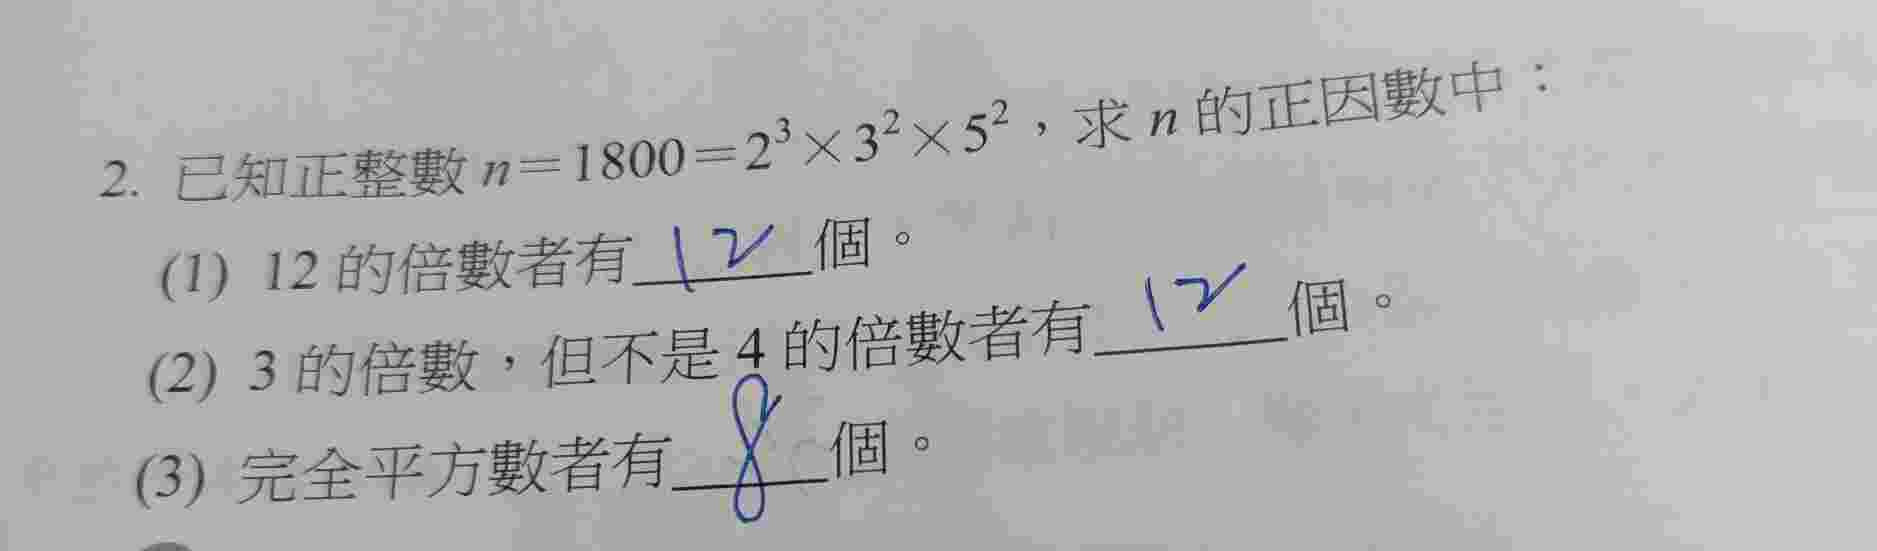 2. 已知正整數 n=1800=2³×3²×5²，求 n 的正因數中：
(1) 12 的倍數者有 12 個。
(2) 3 的倍數，但不是 4 的倍數者有 12 個。
(3) 完全平方數者有 8 個。